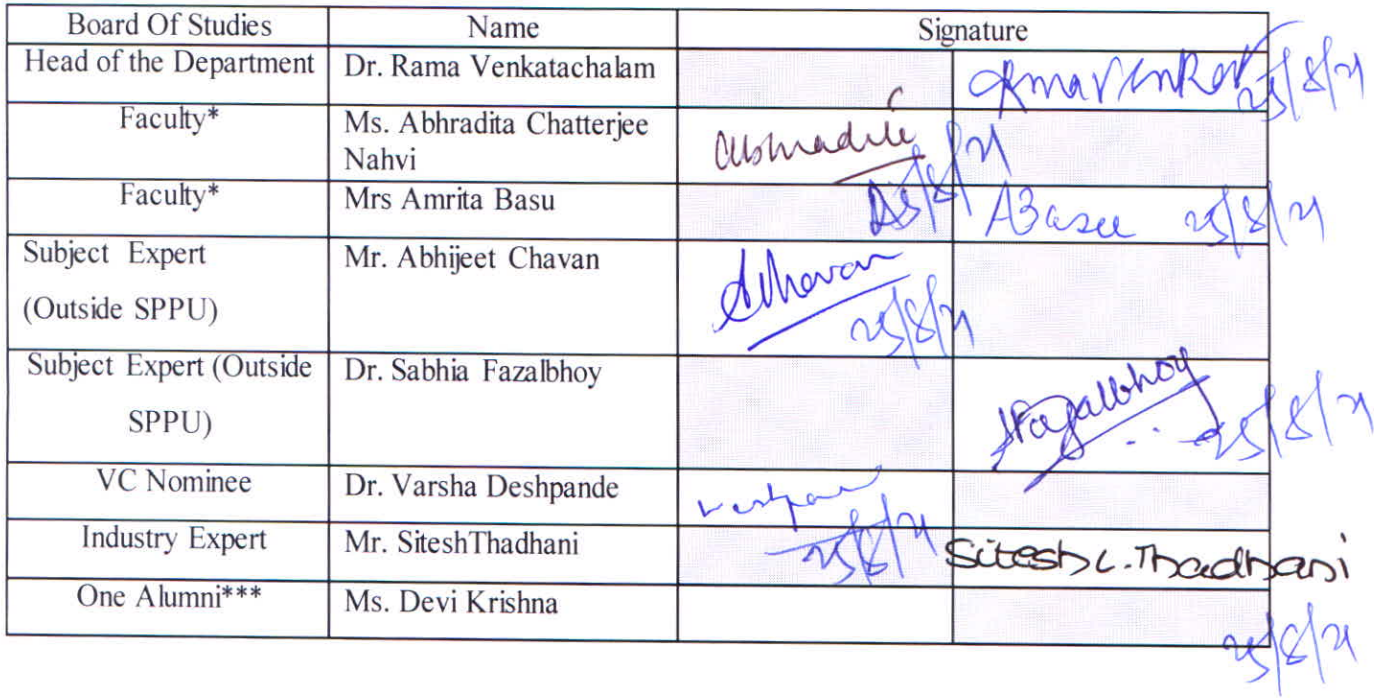 Board Of Studies Name Signature
Head of the Department Dr. Rama Venkatachalam 25/8/21
Faculty* Ms. Abhradita Chatterjee
Nahvi
25/8/21
Faculty* Mrs Amrita Basu ABasu 25/8/21
Subject Expert Mr. Abhijeet Chavan
(Outside SPPU) 25/8/21
Subject Expert (Outside Dr. Sabhia Fazalbhoy SFazalbhoy
SPPU) 25/8/21
VC Nominee Dr. Varsha Deshpande
25/8/21
Industry Expert Mr. SiteshThadhani Sitesh L. Thadhani
One Alumni*** Ms. Devi Krishna
25/8/21